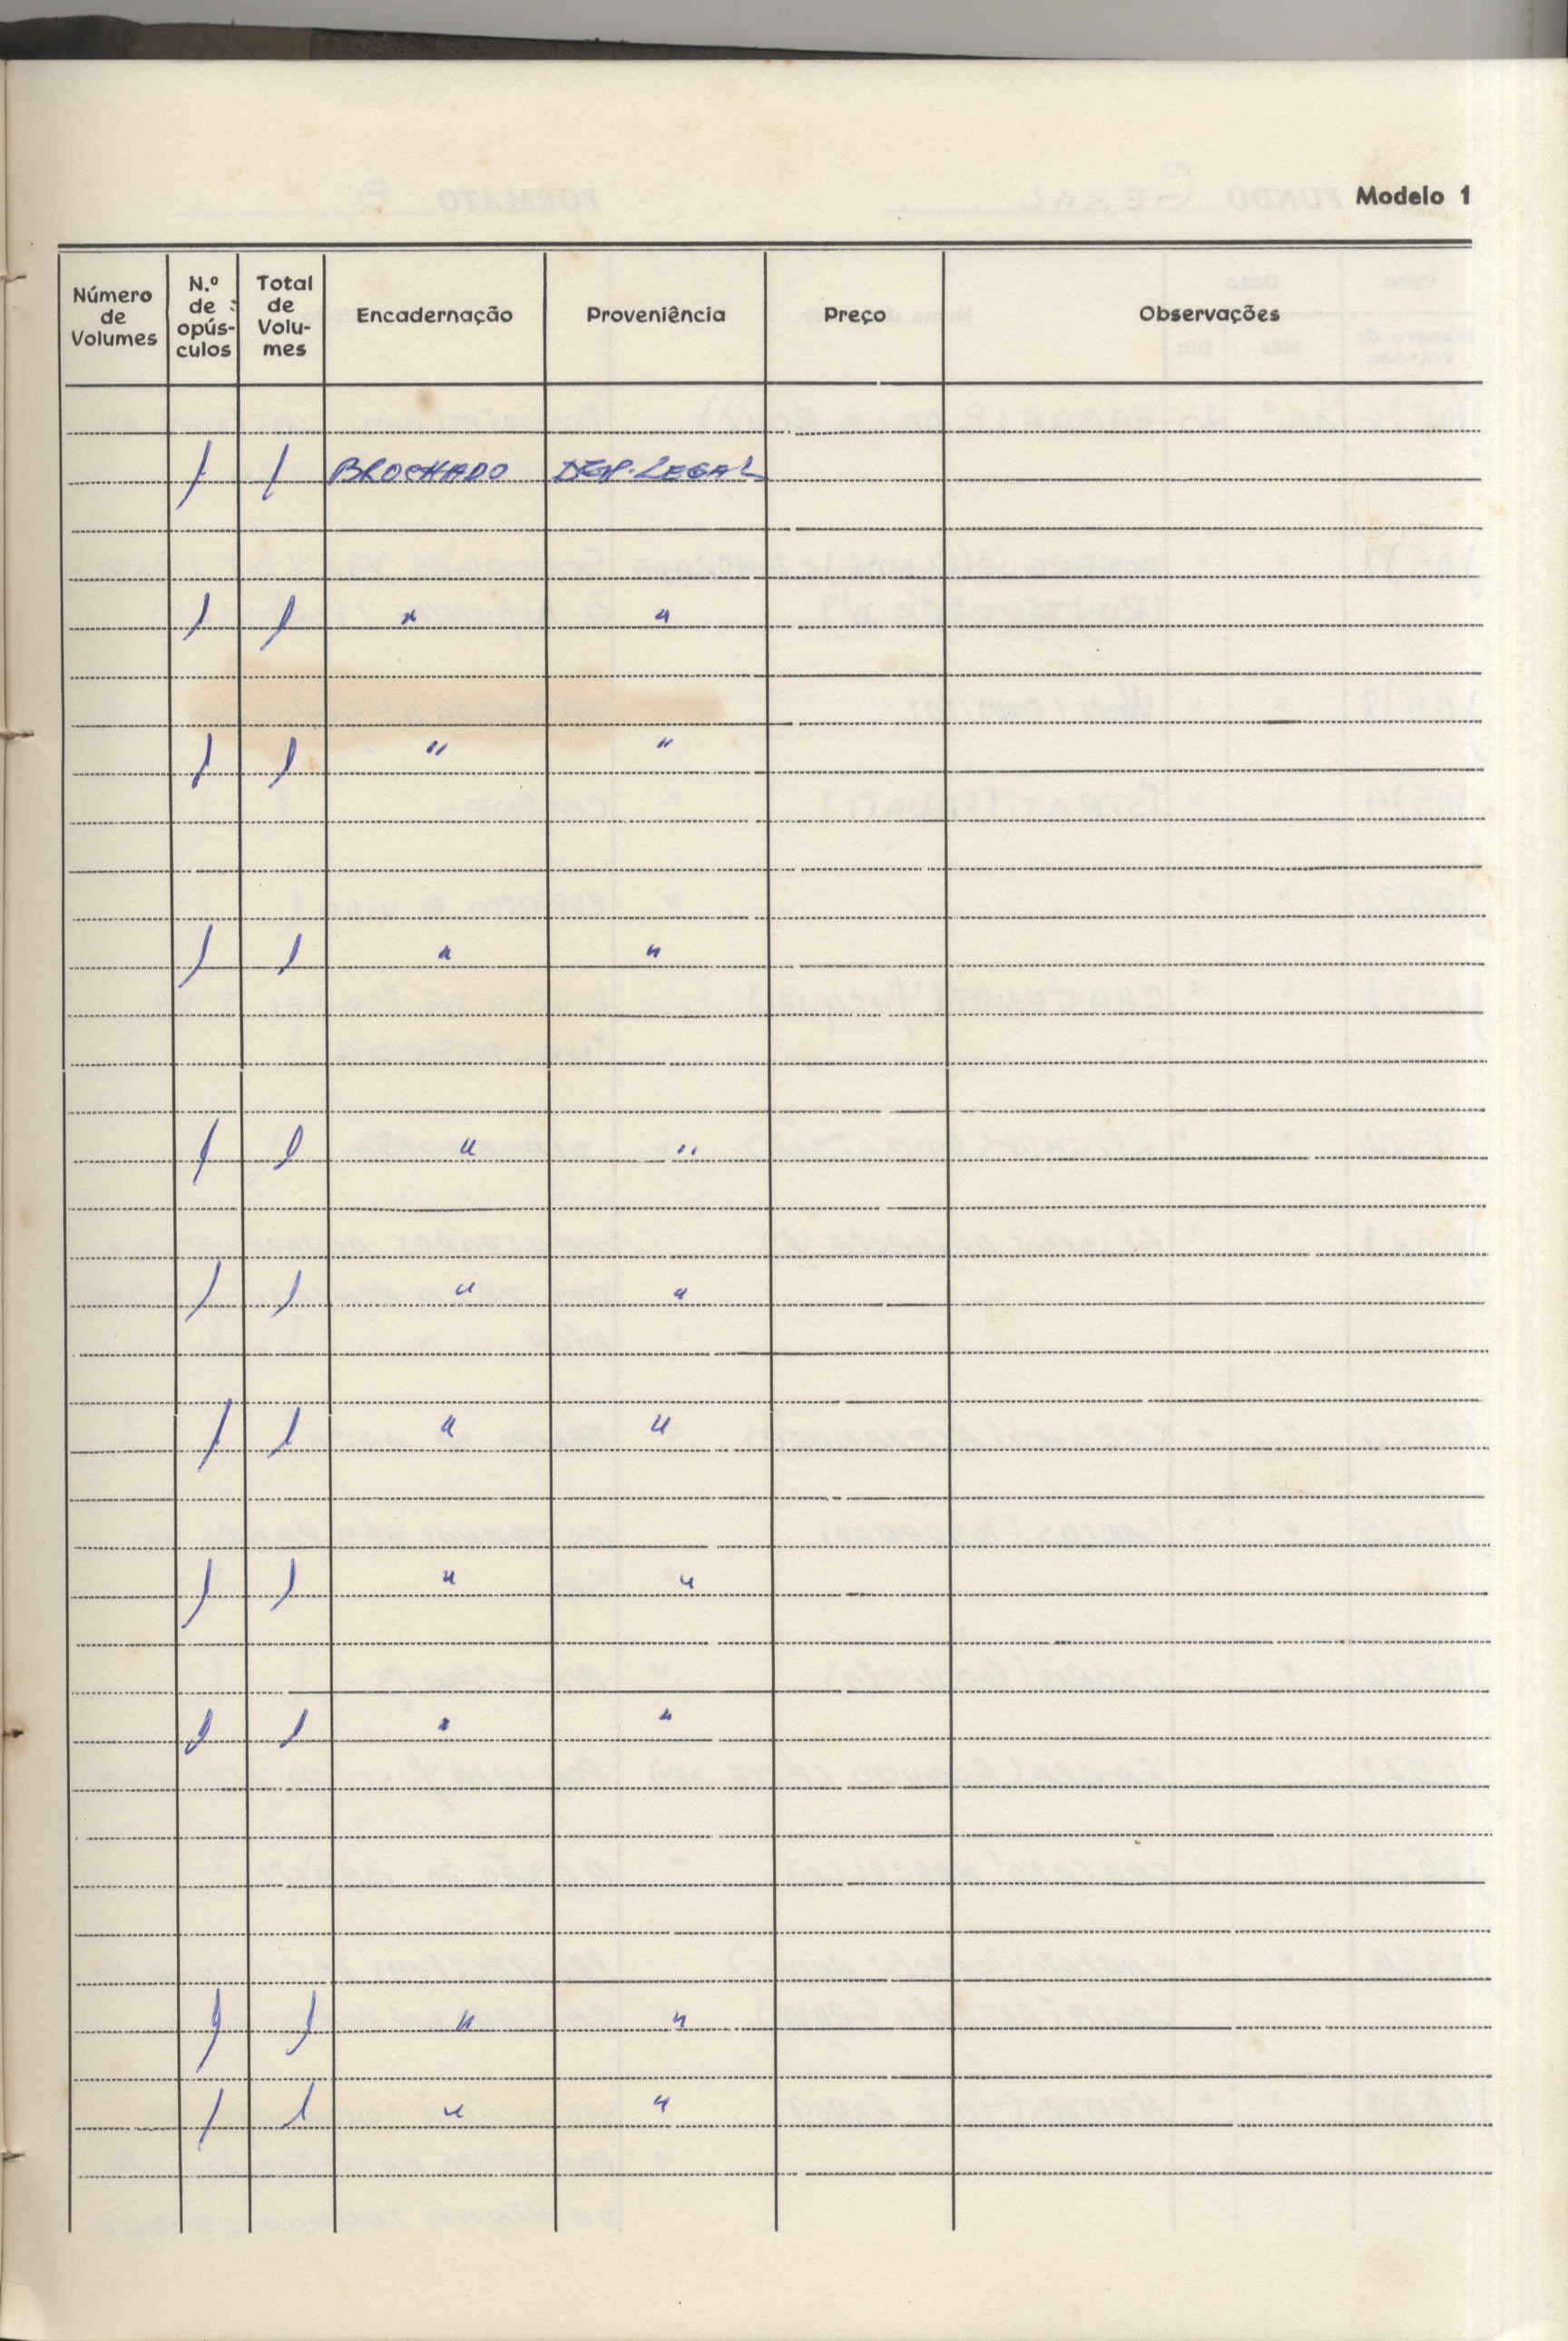 Modelo 1
Número de Volumes
N.º de opús- culos
Total de Volu- mes
Encadernação
Proveniência
Preço
Observações
1 1 BROCHADO DEP. LEGAL
1 1 " "
1 1 " "
1 1 " "
1 1 " "
1 1 " "
1 1 " "
1 1 " "
1 1 " "
1 1 " "
1 1 " "